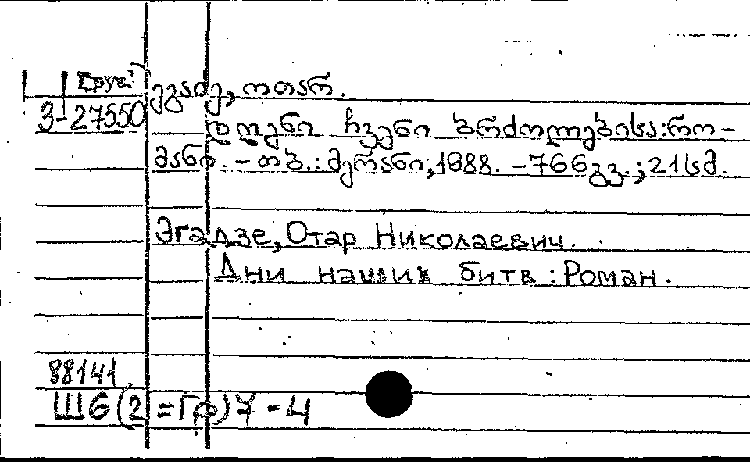 Груз.
3-27550
ეგაძე, ოთარ.
დღენი ჩვენი ბრძოლებისა: რო-
მანი. - თბ.: მერანი, 1988. - 766გვ.; 21სმ.
Эгадзе, Отар Николаевич.
Дни наших битв: Роман.
88141
Ш6(2=Гр)7-4